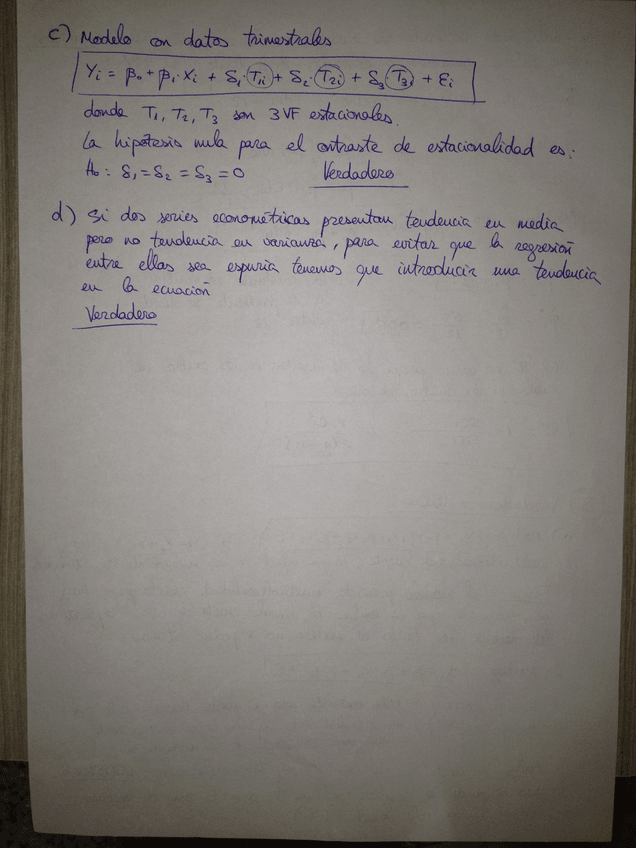 c) Modelo con datos trimestrales
Yi = β0 + β1·Xi + δ1·T1i + δ2·T2i + δ3·T3i + εi
donde T1, T2, T3 son 3 VF estacionales.
La hipótesis nula para el contraste de estacionalidad es:
H0: δ1 = δ2 = δ3 = 0 Verdadero
d) Si dos series econométricas presentan tendencia en media
pero no tendencia en varianza, para evitar que la regresión
entre ellas sea espuria tenemos que introducir una tendencia
en la ecuación
Verdadero